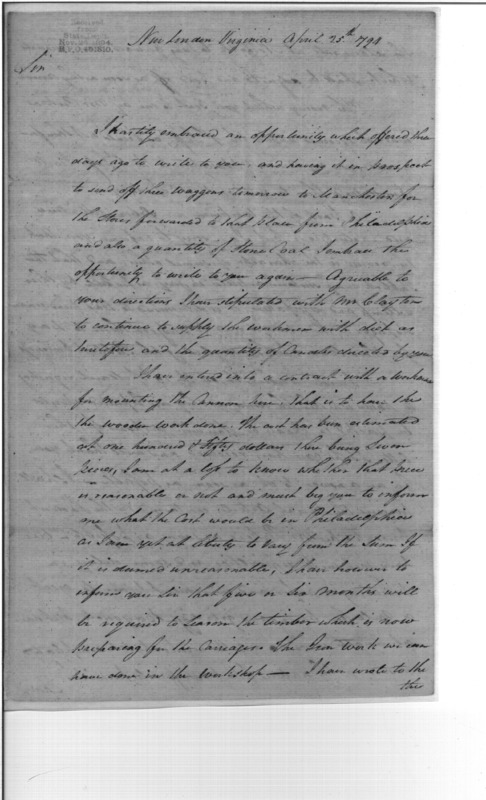 New London Virginia April 25th 1794
Sir
I hastily embraced an opportunity which offered three
days ago to write to you, and having it in prospect
to send off three waggons tomorrow to Manchester for
the Stores forwarded to that place from Philadelphia
and also a quantity of Stone Coal I embrace the
opportunity to write to you again — Agreeable to
your directions I have stipulated with Mr Clayton
to continue to supply the workmen with diet as
heretofore and the quantity of Candles directed by you
I have entered into a contract with a workman
for mounting the Cannon here. That is to have the
the wooden work done. The cost has been estimated
at one hundred & fifty dollars there being Seven
pieces, I am at a loss to know whether that price
is reasonable or not and must beg you to inform
me what the Cost would be in Philadelphia
as I am yet at liberty to vary from the Sum If
it is deemed unreasonable, I have however to
inform you Sir that five or Six months will
be required to Season the timber which is now
preparing for the Carriages. The Iron work we can
have done in the workshop — I have wrote to the
this